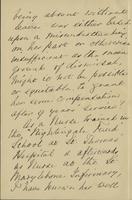 being absent without
leave was either based
upon a misunderstanding
on her part or otherwise
insufficient as the sole
ground of dismissal,
might it not be possible
or equitable to grant
her some compensation
after 9 years' service?
As a Nurse trained in
the "Nightingale Fund"
School at St Thomas'
Hospital & afterwards
a Nurse at the St
Marylebone Infirmary,
I have known her well